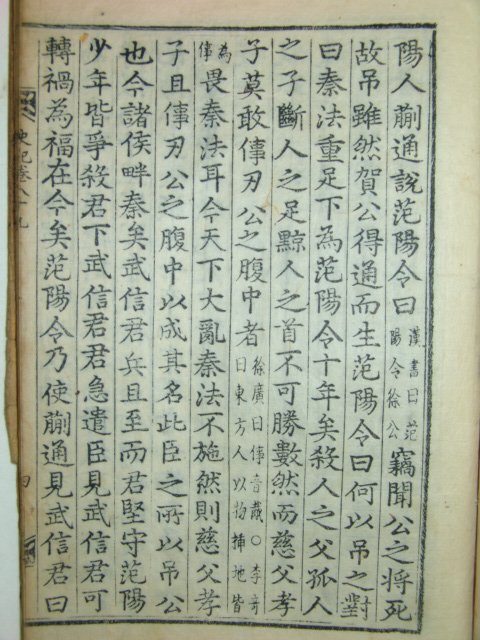 陽人蒯通說范陽令曰漢書曰范陽令徐公竊聞公之將死
故吊雖然賀公得通而生范陽令曰何以吊之對
曰秦法重足下為范陽令十年矣殺人之父孤人
之子斷人之足黥人之首不可勝數然而慈父孝
子莫敢倳刃公之腹中者徐廣曰倳音胾○李奇曰東方人以物揷地皆
為倳畏秦法耳今天下大亂秦法不施然則慈父孝
子且倳刃公之腹中以成其名此臣之所以吊公
也今諸侯畔秦矣武信君兵且至而君堅守范陽
少年皆爭殺君下武信君君急遣臣見武信君可
轉禍為福在今矣范陽令乃使蒯通見武信君曰
史記卷八十九